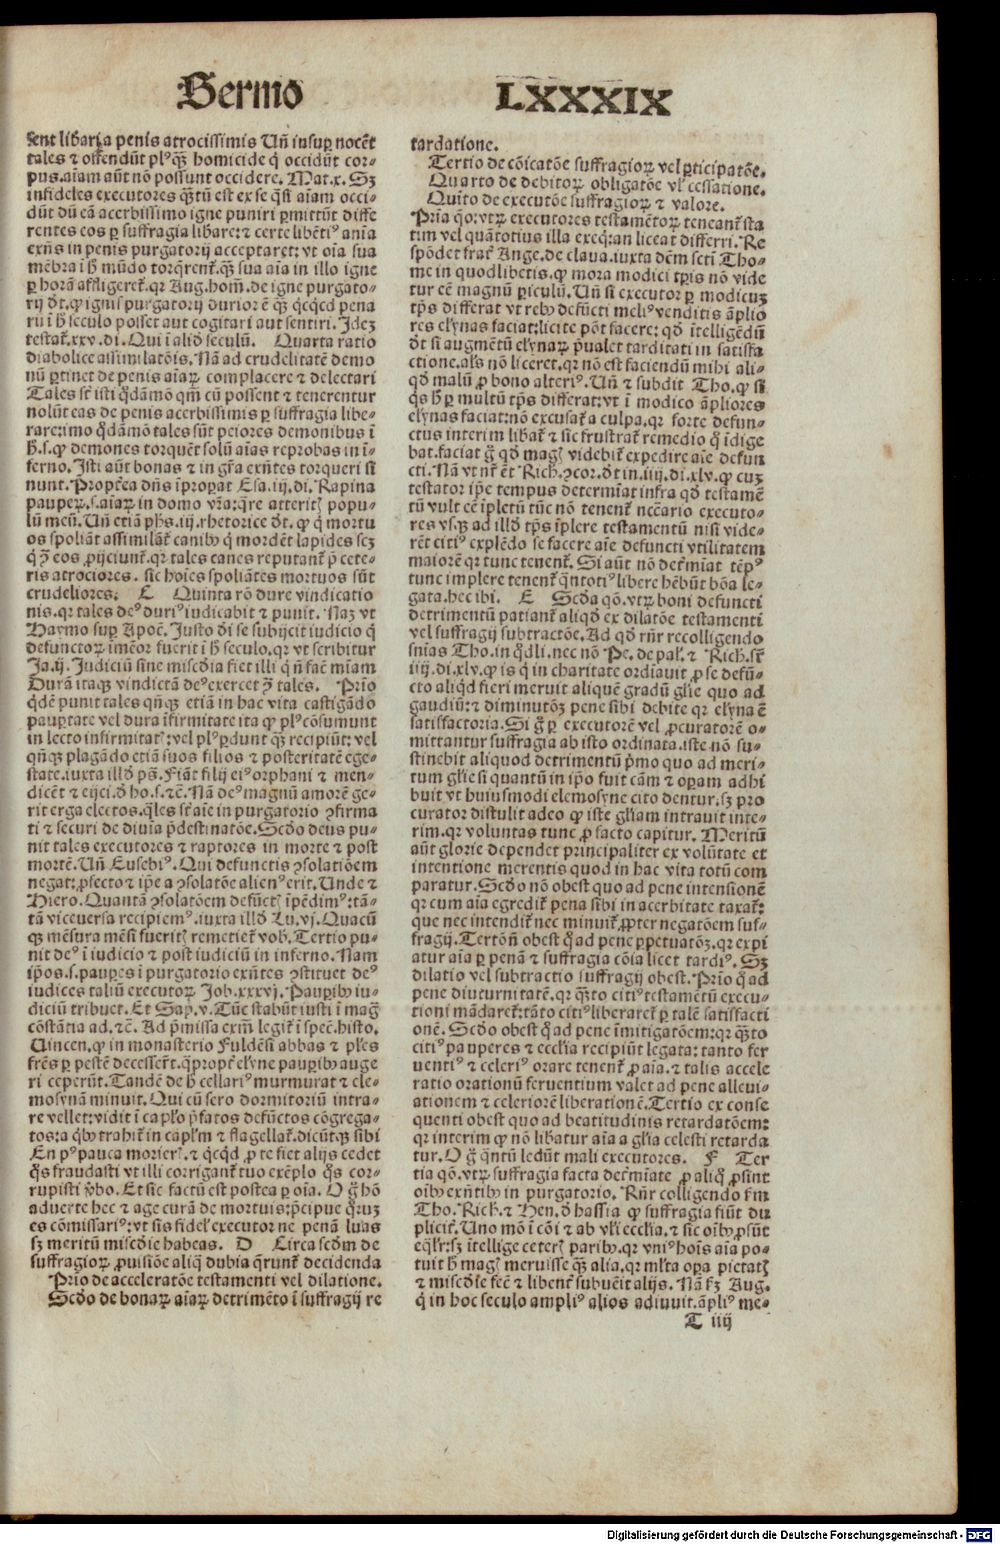 Sermo LXXXIX
sent liba͛ri a penis atrocissimis Uñ insup nocẽt
tales ⁊ offendũt plꝰqꝫ homicide q̇ occidũt cor-
pus.aĩam aũt nõ possunt occidere. Mat.x. Sꝫ
infideles executores qꝫtũ est ex se q̃si aĩam occi-
dũt dũ eã acerbissimo igne puniri ꝑmittũt diffe
rentes eos ꝑ suffragia liƀare: ⁊ certe libẽtiꝰ anĩa
exñs in penis purgatorij acceptaret: vt oĩa sua
mẽbra ĩ h̃ mũdo torq̃rent᷑.qꝫ sua aĩa in illo igne
ꝑ horam affligeret᷑.qꝛ Aug.hom̃.de igne purgato-
rij dt̃.ꝙ ignis purgatorij durior ẽ qꝫ q̇cq̇d pena
rũ ĩ h̃ seculo posset aut cogitari aut sentiri. Idez
testat᷑.xxv.di. Qui ĩ alio seculũ. Quarta ratio
diabolice assimilatõis. Nã ad crudelitatẽ demo
nũ ꝑtinet de penis aĩaꝝ complacere ⁊ delectari
Tales sĩt isti q̃dãmõ qm̃ cũ possent ⁊ tenerentur
nolũt eas de penis acerbissimis ꝑ suffragia libe-
rare:imo q̃dãmõ tales sũt peiores demonibus ĩ
h̃.s.ꝙ demones torquẽt solũ aĩas reprobas in ĩ-
ferno. Isti aũt bonas ⁊ in gr̃a exñtes torqueri si
nunt. Propt̃ea dñs ĩproꝑat Esa.iij.di. Rapina
pauperꝝ.s.aĩaꝝ in domo vr̃a:q̃re atteritꝭ popu-
lũ meũ. Uñ etiã ph̃s.iij.rhetorice dt̃.ꝙ q̇ mortu
os spoliãt assimilãt᷑ canibꝰ q̇ mordẽt lapides scꝫ
q̇ ꝯ̃ eos ꝓijciunt᷑.qꝛ tales canes reputant᷑ p̃ cete-
ris atrociores. sic hoĩes spoliãtes mortuos sũt
crudeliores. C Quinta rõ dure vindicatio
nis.qꝛ tales deꝰ duriꝰ iudicabit ⁊ punit. Naꝫ vt
Haymo suꝑ Apoc̃. Iusto dĩ se subijcit iudicio q̇
defunctoꝝ ĩmẽor fuerit ĩ h̃ seculo.qꝛ vt scribitur
Ja.ij. Judiciũ sine misc̃dia fiet illi q̇ ñ facit miam
Durã itaqꝫ vindictã deꝰ exercet ꝯ̃ tales. Prĩo
q̃dẽ punit tales qñqꝫ etiã in hac vita castigãdo
pauꝑtate vel dura ĩfirmitate ita ꝙ plꝰ cõsumunt
in lecto infirmitatꝭ:vel plꝰ ꝑdunt qꝫ recipiũt: vel
qñqꝫ plagãdo etiã suos filios ⁊ posteritatẽ ege-
state.iuxta illd̃ ps̃. Fiãt filij eiꝰ orphani ⁊ men-
dicẽt ⁊ eijci.d̃ ho.s.⁊c̃. Nã deꝰ magnũ amorẽ ge-
rit erga electos.q̃les st̃ aĩe in purgatorio ꝯfirma
ti ⁊ securi de diuia p̃destinatõe. Scd̃o deus pu-
nit tales executores ⁊ raptores in morte ⁊ post
mortẽ. Uñ Eusebiꝰ. Qui defunctis ꝯsolatiõem
negat:ꝓfecto ⁊ ip̃e a ꝯsolatõe alienꝰ erit. Unde ⁊
Hiero. Quantã ꝯsolatõem defũctꝭ ĩpẽdimꝰ:tã-
tã viceversa recipiemꝰ.iuxta illd̃ Lu.vj. Quacũ
qꝫ mẽsura mẽsi fueritꝭ remetiet᷑ vob̃. Tertio pu-
nit deꝰ ĩ iudicio ⁊ post iudiciũ in inferno. Nam
ip̃os.s.pauꝑes ĩ purgatorio exñtes ꝯstituet deꝰ
iudices taliũ executoꝝ Job.xxxvj. Pauꝑibꝰ iu-
diciũ tribuet. Et Sap.v. Tũc stabũt iusti ĩ mag̃
cõstãtia ad.⁊c̃. Ad p̃missa exm̃ legit᷑ ĩ spec̃.histo.
Uincen.ꝙ in monasterio Fuldẽsi abbas ⁊ pl̃es
frẽs ꝑ pestẽ decesser̃t.q̃propt̃ elẏne pauꝑibꝰ auge
ri ceperũt. Tandẽ de h̃ cellariꝰ murmurat ⁊ ele-
mosynã minuit. Qui cũ sero dormitoriũ intra-
re vellet:vidit ĩ capl̃o p̃fatos defũctos cõgrega-
tos:a q̇bꝰ trahit᷑ in capl̃m ⁊ flagellat᷑.dicũtqꝫ sibi
En pꝰ pauca morierꝭ.⁊ q̇cq̇d ꝓ te fiet alijs cedet
q̃s fraudasti vt illi corrigant᷑ tuo exẽplo q̃s cor-
rupisti v̓bo. Et sic factũ est postea ꝑ oĩa. O g̃ hõ
aduerte hec ⁊ age curã de mortuis:p̃cipue q̃ruꝫ
es cõmissariꝰ:vt sis fidel̓ executor ne penã luas
sꝫ meritũ misc̃die habeas. D Circa scd̃m de
suffragioꝝ ꝓuisiõe aliq̃ dubia q̃runt᷑ decidenda
Prĩo de acceleratõe testamenti vel dilatione.
Scd̃o de bonaꝝ aĩaꝝ detrimẽto ĩ suffragij re
tardatione.
Tertio de cõicatõe suffragioꝝ vel ꝑticipatõe.
Quarto de debitoꝝ obligatõe vl̓ cessatione.
Quito de executõe suffragioꝝ ⁊ valore.
Prĩa q̃o:vtrũ executores testamẽtoꝝ teneant᷑ sta
tim vel quãtotius illa exeq̃:an liceat differri. Re
spõdet frat̃ Ange.de claua.iuxta dẽm scti Tho-
me in quodlibetis.ꝙ mora modici tꝑis nõ vide
tur eẽ magnũ ꝑiculũ. Uñ si executor ꝑ modicuꝫ
tp̃s differat vt rebꝰ defũcti meliꝰ venditis ãplio
res elẏnas faciat:licite põt facere: qd̃ ĩtelligẽdũ
dt̃ si augmẽtũ elẏnaꝝ p̃ualet tarditati in satisfa
ctione.als̃ nõ liceret.qꝛ nõ est faciendũ mihi ali-
qd̃ malũ ꝓ bono alteriꝰ. Uñ ⁊ subdit Tho.ꝙ si
q̇s h̃ ꝑ multũ tp̃s differat:vt ĩ modico ãpliores
elẏnas faciat:nõ excusat᷑ a culpa.qꝛ forte defun-
ctus interim liƀat᷑ ⁊ sic frustrat᷑ remedio q̃ ĩdige
bat.faciat g̃ qd̃ magꝭ videbit᷑ expedire aĩe defun
cti. Nã vt nt̃ et Rich.ꝯcor.dt̃ in.iiij.di.xlv.ꝙ cuꝫ
testator ip̃e tempus determĩat infra qd̃ testamẽ
tũ vult eẽ ĩpletũ tũc nõ tenent᷑ nec̃ario executo-
res vsqꝫ ad illd̃ tp̃s ĩplere testamentũ nisi vide-
rẽt citiꝰ explẽdo se facere aĩe defuncti vtilitatem
maiorẽ qꝛ tunc tenent᷑. Si aũt nõ deter̃mĩat tẽpꝰ
tunc implere tenent᷑ q̃ntotiꝰ libere hẽbũt bõa le-
gata.hec ibi. E Scd̃a q̃o.vtꝝ boni defuncti
detrimentũ patiant᷑ aliqd̃ ex dilatõe testamenti
vel suffragij subtractõe. Ad qd̃ rñr recolligendo
snĩas Tho.in q̃dli.nec nõ Pe.de pal̃.⁊ Rich.sr̃
iiij.di.xlv.ꝙ is q̇ in charitate ordĩauit ꝓ se defũ-
cto aliq̇d fieri meruit aliquẽ gradũ gl̃ie quo ad
gaudiũ:⁊ diminutõꝫ pene sibi debite qꝛ elẏna ẽ
satisfactoria. Si g̃ ꝑ executorẽ vel ꝓcuratorẽ o-
mittantur suffragia ab isto ordinata.iste nõ su-
stinebit aliquod detrimentũ p̃mo quo ad meri-
tum gl̃ie si quantũ in ip̃o fuit cãm ⁊ oꝑam adhi
buit vt huiusmodi elemosyne cito dentur.sꝫ pro
curator distulit adeo ꝙ iste gl̃iam intrauit inte-
rim.qꝛ voluntas tunc ꝓ facto capitur. Meritũ
aũt glorie dependet principaliter ex volũtate et
intentione merentis quod in hac vita totũ com
paratur. Scd̃o nõ obest quo ad pene intensionẽ
qꝛ cum aĩa egredit᷑ pena sibi in acerbitate taxat᷑:
que nec intendit᷑ nec minuit᷑ ꝓpter negatõem suf-
fragij. Tertõñ obest q̃ ad pene ꝑpetuatõꝫ.qꝛ expĩ
atur aĩa ꝑ penã ⁊ suffragia cõia licet tardiꝰ. Sꝫ
dilatio vel subtractio suffragij obest. Prĩo q̃ ad
pene diuturnitatẽ.qꝛ q̃ꝫto citiꝰ testamẽtũ execu-
tioni mãdaret᷑:tãto citiꝰ liberaret᷑ ꝑ talẽ satisfacti
onẽ. Scd̃o obest q̃ ad pene ĩmitigatõem:qꝛ q̃ꝫto
citiꝰ pauperes ⁊ eccl̃ia recipiũt legata: tanto fer
uentiꝰ ⁊ celeriꝰ orare tenent᷑ ꝓ aĩa.⁊ talis accele
ratio orationũ feruentium valet ad pene alleui-
ationem ⁊ celeriorẽ liberationẽ. Tertio ex conse
quenti obest quo ad beatitudinis retardatõem:
qꝛ interim ꝙ nõ liƀatur aĩa a gl̃ia celesti retarda
tur. O g̃ q̃ntũ ledũt mali executores. F Ter
tia q̃o.vtꝝ suffragia facta deter̃mĩate ꝓ aliq̃ ꝓsint
oĩbꝰ exñtibꝰ in purgatorio. Rñr colligendo ẜm
Tho. Rich.⁊ Hen.d̃ hassia ꝙ suffragia fiũt du
plicit᷑. Uno mõ ĩ cõi ⁊ ab vl̓i eccl̃ia.⁊ sic oĩbꝰ ꝓsũt
eq̃lr̃:sꝫ ĩtellige ceterꝭ paribꝰ.qꝛ vniꝰ hoĩs aĩa po-
tuit h̃ magꝭ meruisse qꝫ alia.qꝛ ml̃ta oꝑa pietatꝭ
⁊ misc̃die fec̃ ⁊ libent᷑ subuẽit alijs. Nã ẜꝫ Aug.
q̇ in hoc seculo ampliꝰ alios adiuuit.ãpliꝰ me-
T iiij
Digitalisierung gefördert durch die Deutsche Forschungsgemeinschaft - DFG